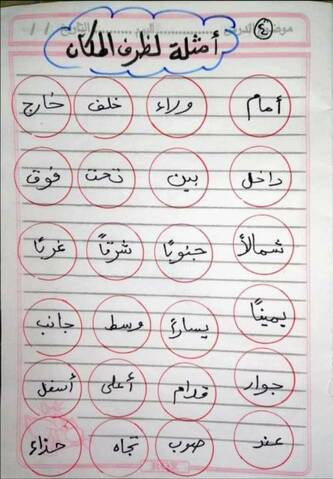 موضوع الدرس اليوم التاريخ / /
٤
أمثلة لظرف المكان
أمام وراء خلف خارج
داخل بين تحت فوق
شمالأ جنوبًا شرقًا غربًا
يمينًا يسارًا وسط جانب
جوار قدام أعلى أسفل
عند صوب تجاه حذاء